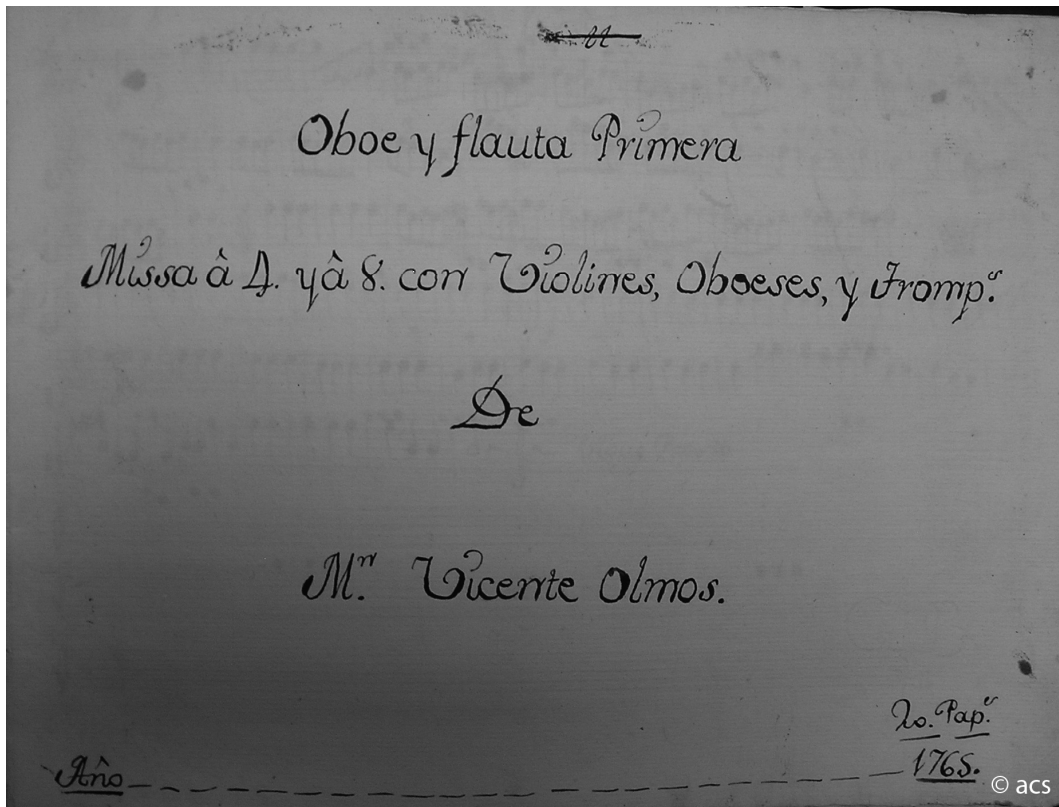 Oboe y flauta Primera
Missa â 4. y â 8. con Violines, Oboeses, y Tromp.s
De
M.n Vicente Olmos.
20. Pap.s
Año 1765.
© acs